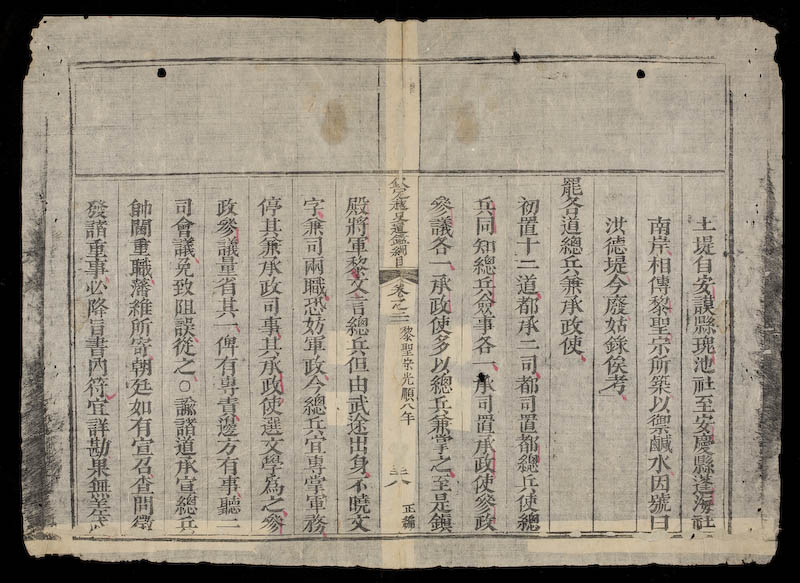 土堤自安謨縣瑰池社至安慶縣蓬海社
南岸相傳黎聖宗所築以禦鹹水因號曰
洪德堤今廢姑錄俟考
罷各道總兵兼承政使
初置十二道都承二司都司置都總兵使總
兵同知總兵僉事各一承司置承政使參政
參議各一承政使多以總兵兼掌之至是鎮
欽定越史通鑑綱目 卷之三 黎聖宗光順八年 三八 正編
殿將軍黎文言總兵但由武途出身不曉文
字兼司兩職恐妨軍政今總兵宜專掌軍務
停其兼承政司事其承政使選文學為之參
政參議量省其一俾有專責邊方有事聽二
司會議免致阻誤從之○諭諸道承宣總兵
帥閫重職藩維所寄朝廷如有宣召查問徵
發諸重事必降旨書內符宜詳勘果無差